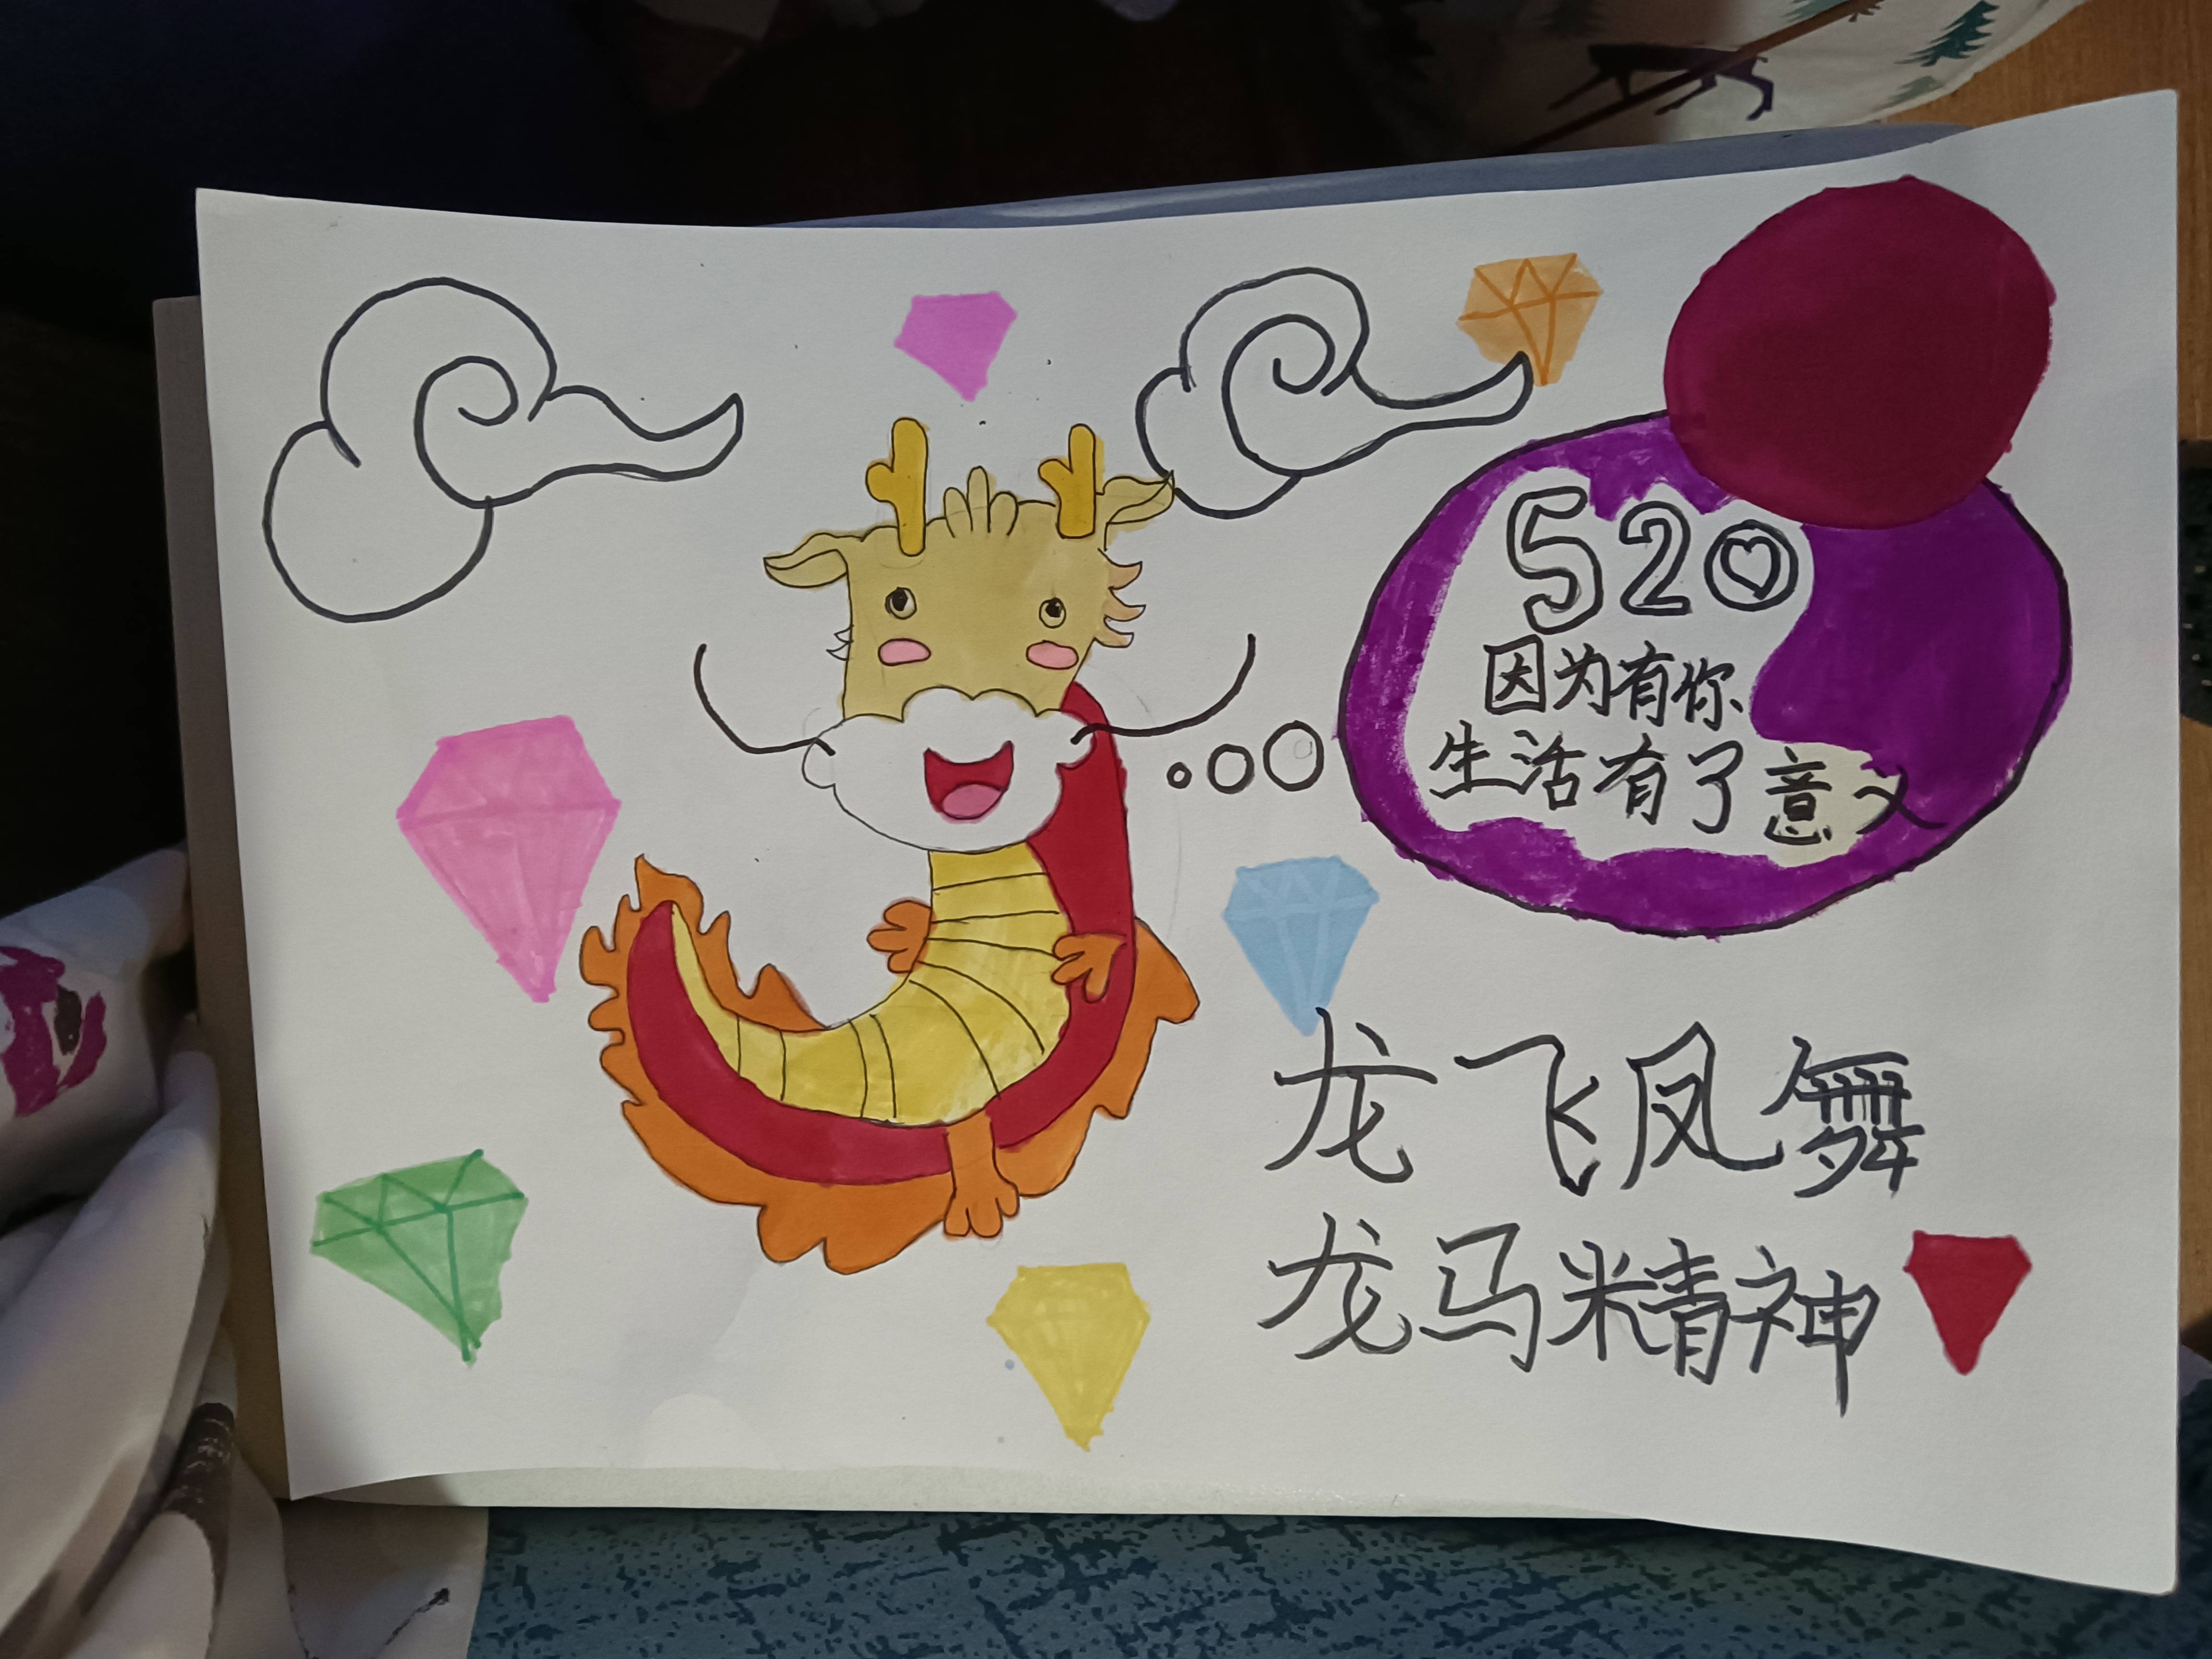 520
因为有你
生活有了意义
龙飞凤舞
龙马精神